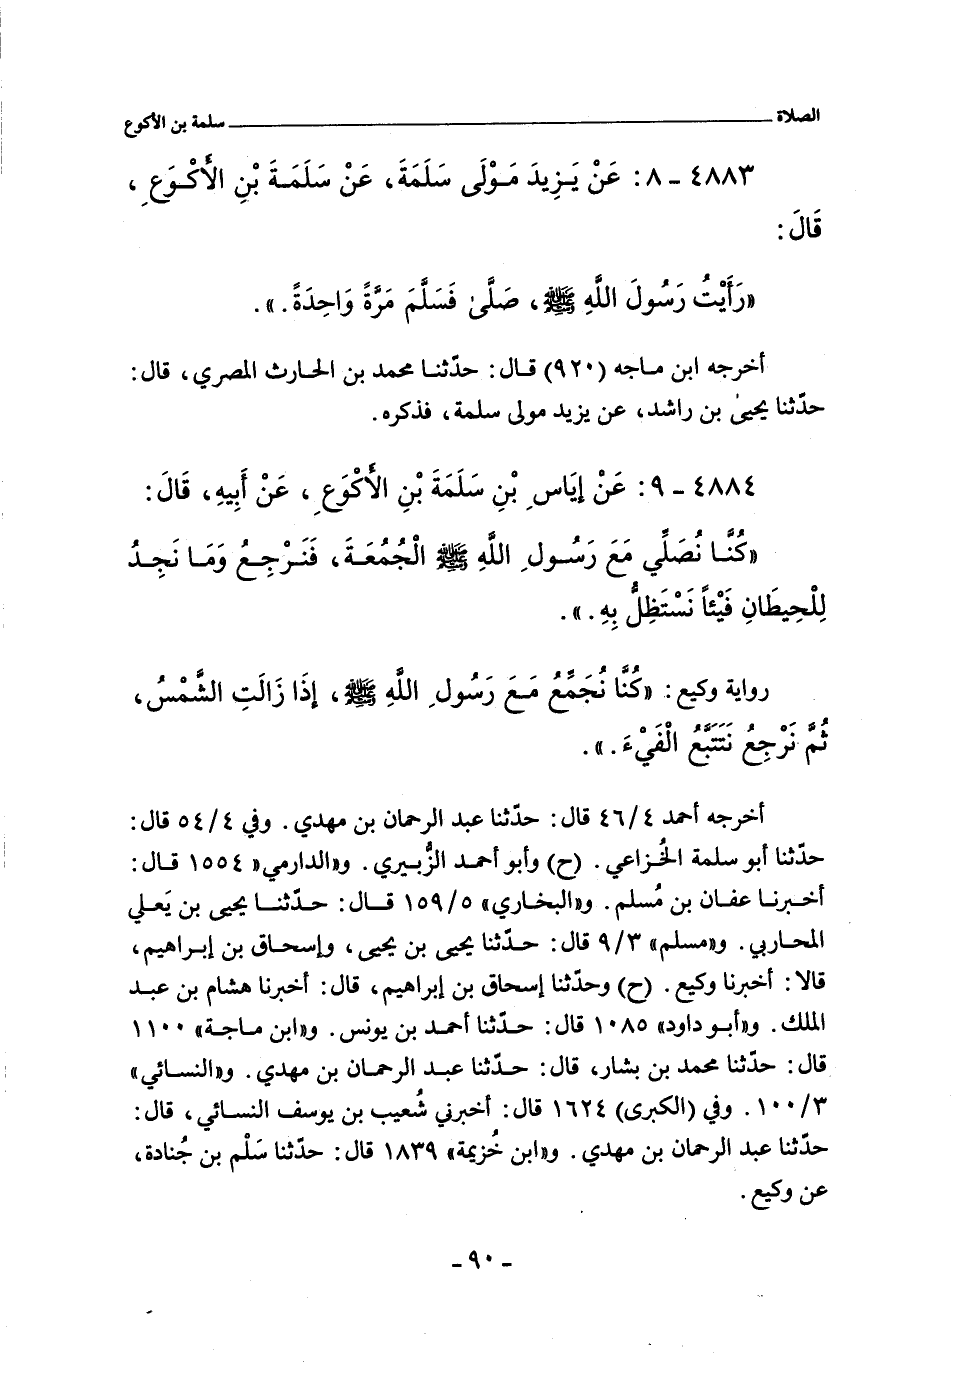 الصلاة ـــــــــ سلمة بن الأكوع
٤٨٨٣ ـ ٨: عَنْ يَـزِيدَ مَـوْلَى سَلَمَةَ، عَنْ سَلَمَـةَ بْنِ الأَكْـوَعِ،
قَالَ:
«رَأَيْتُ رَسُولَ اللَّهِ ﷺ، صَلَّىٰ فَسَلَّمَ مَرَّةً وَاحِدَةً.».
أخرجه ابن مـاجه (٩٢٠) قـال: حدّثنـا محمد بن الحارث المصري، قال:
حدّثنا يحيىٰ بن راشد، عن يزيد مولى سلمة، فذكره.
٤٨٨٤ ـ ٩: عَنْ إيَاسِ بْنِ سَلَمَةَ بْنِ الأَكْوَعِ، عَنْ أَبِيهِ، قَالَ:
«كُنَّـا نُصَلِّي مَعَ رَسُـولِ اللَّهِ ﷺ الْجُمُعَـةَ، فَنَـرْجِـعُ وَمَـا نَجِـدُ
لِلْحِيطَانِ فَيْئاً نَسْتَظِلُّ بِهِ.».
رواية وكيع: «كُنَّا نُجَمِّعُ مَـعَ رَسُولِ اللَّهِ ﷺ، إذَا زَالَتِ الشَّمْسُ،
ثُمَّ نَرْجِعُ نَتَتَبَّعُ الْفَيْءَ.».
أخرجه أحمد ٤/٤٦ قال: حدّثنا عبد الرحمان بن مهدي. وفي ٤/٥٤ قال:
حدّثنا أبو سلمة الخُـزاعي. (ح) وأبو أحمـد الزُّبـيري. و«الدارمي» ١٥٥٤ قـال:
أخـبرنـا عفـان بن مُسلم. و«البخـاري» ٥/١٥٩ قـال: حـدّثنـا يحيى بن يَعـلي
المحـاربي. و«مسلم» ٣/٩ قال: حـدّثنا يحيى بن يحيى، وإسحـاق بن إبـراهيم،
قالا: أخبرنا وكيع. (ح) وحدّثنا إسحاق بن إبراهيم، قال: أخبرنا هشام بن عبـد
الملك. و«أبـو داود» ١٠٨٥ قال: حـدّثنا أحمـد بن يونس. و«ابن مـاجـة» ١١٠٠
قال: حدّثنا محمد بن بشار، قال: حـدّثنا عبـد الرحمـان بن مهدي. و«النسـائي»
٣/١٠٠. وفي (الكبرى) ١٦٢٤ قال: أخبرني شُعيب بن يوسف النسـائي، قال:
حدّثنا عبد الرحمان بن مهدي. و«ابن خُزيمة» ١٨٣٩ قال: حدّثنا سَلْم بن جُنادة،
عن وكيع.
ـ ٩٠ ـ